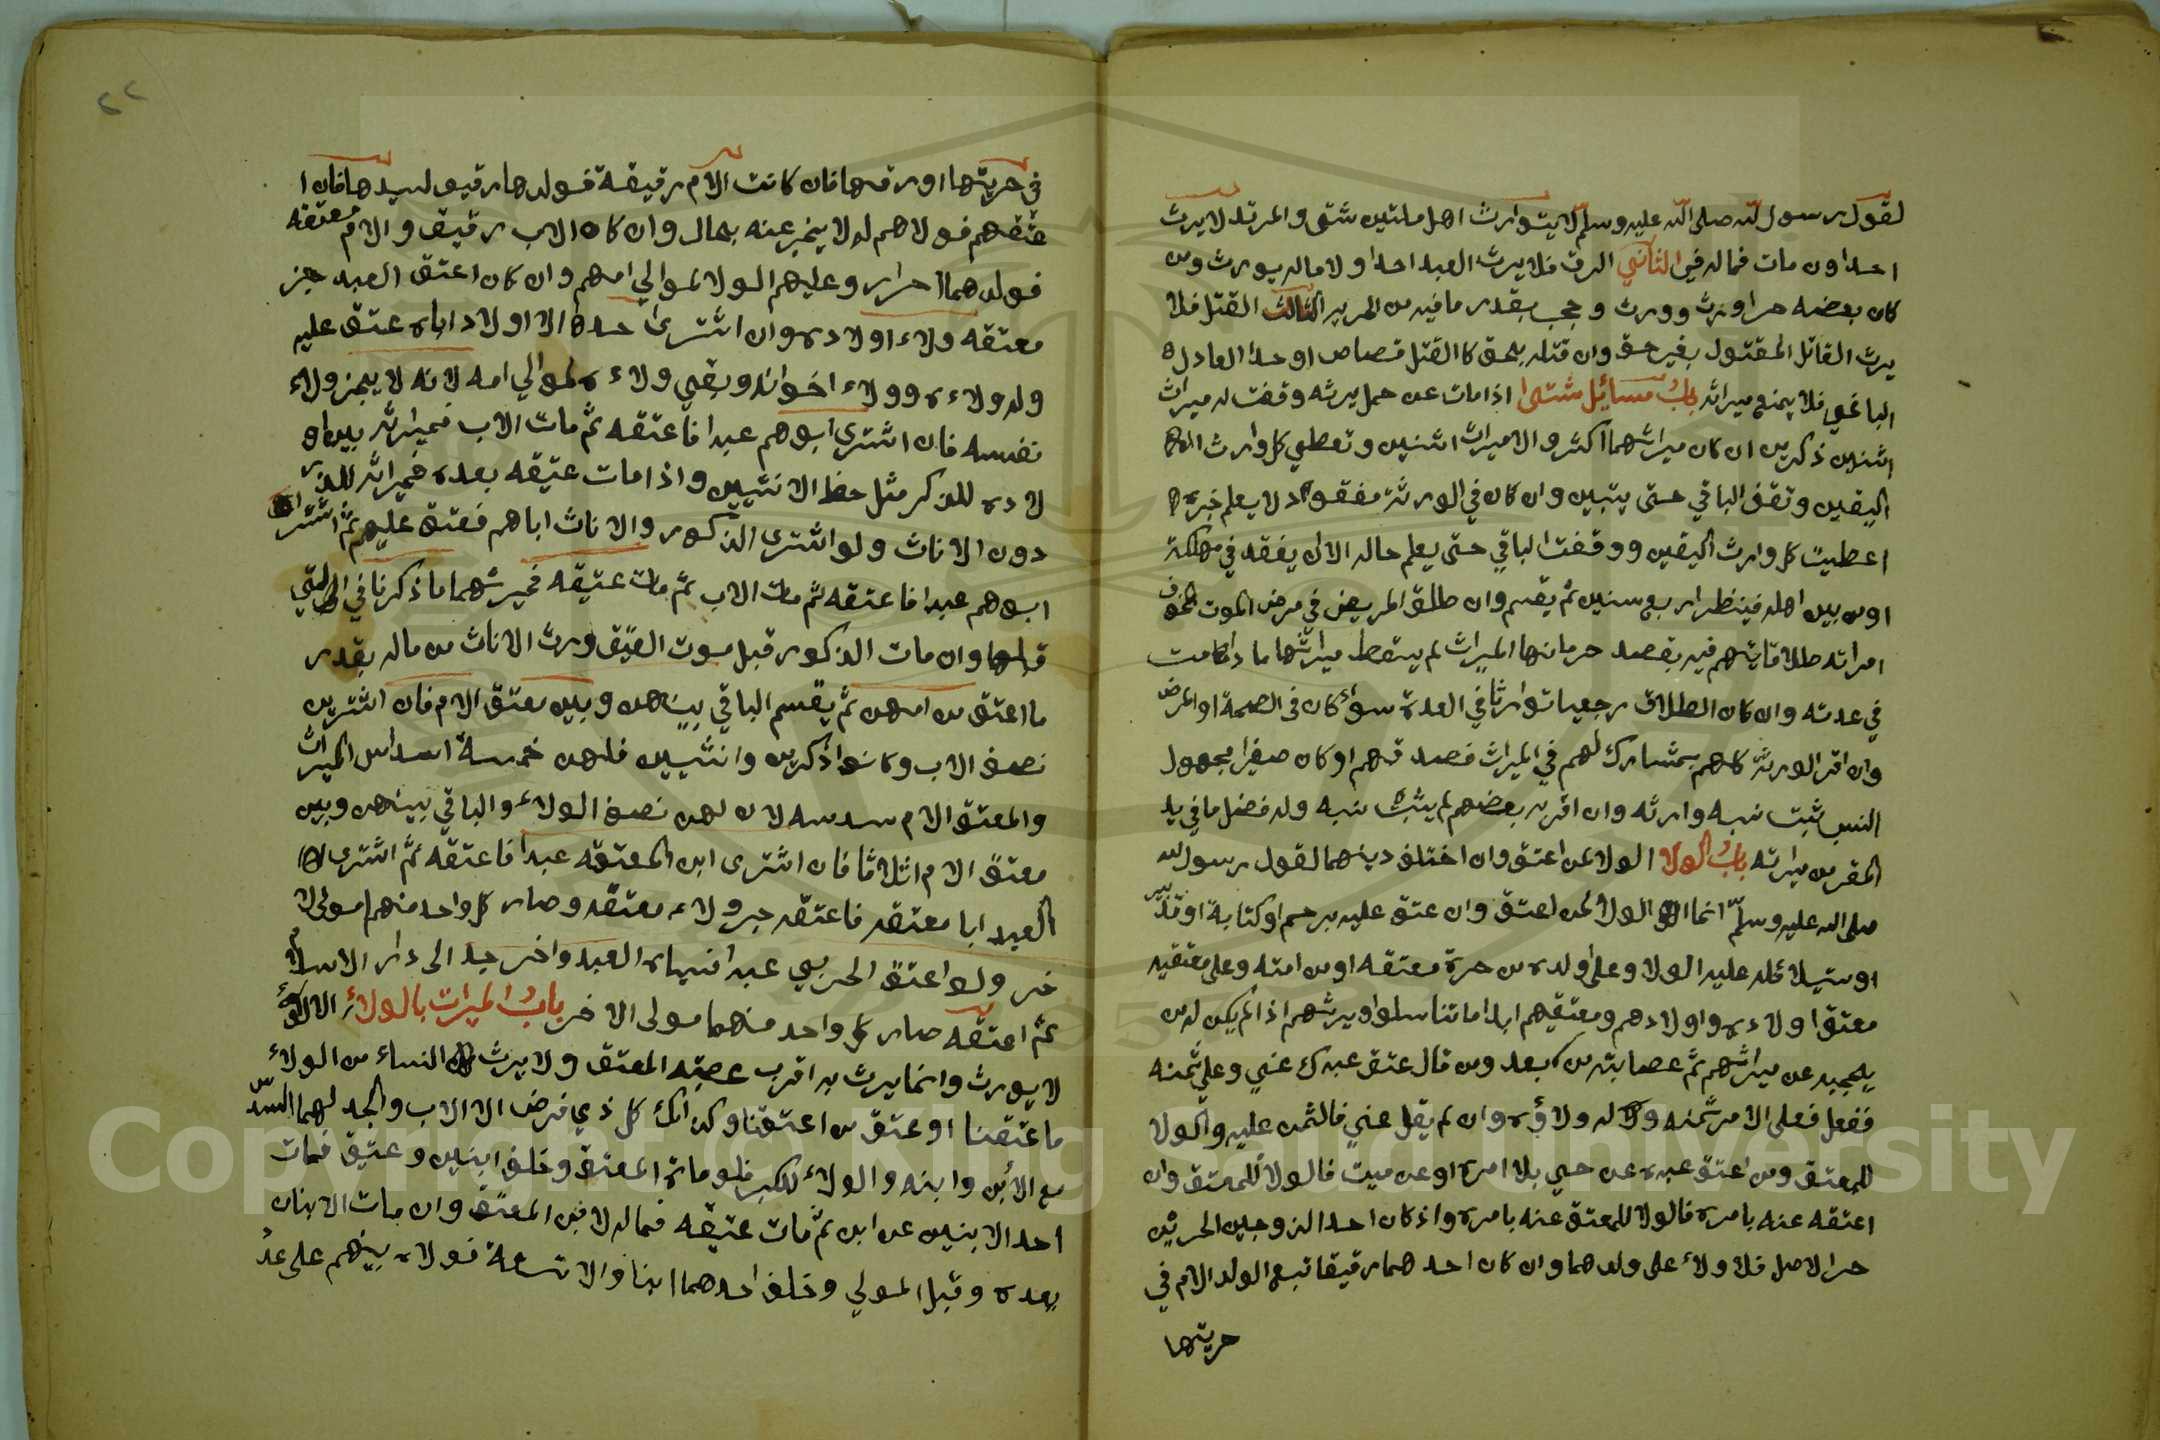 لقول رسول الله صلى الله عليه وسلم لا يتوارث اهل ملتين شتى والمرتد لا يرث
احدا ون مات فماله في الثاني الرق فلا يرث العبد احدا ولا ماله يورث ومن
كان بعضه حرا ورث وورث وحجب بقدر ما فيه من الحرية الثالث القتل فلا
يرث القاتل المقتول بغير حق وان قتله بحق كالقتل قصاص او حدا العادل
الباغي فلا يمنع ميراثه باب مسائل شتى اذا مات عن حمل يرثه وقفت له ميراث
اثنين ذكرين ان كان ميراثهما اكثر والا ميراث اثنين وتعطي كل وارث
اليقين وتقف الباقي حتى يتبين وان كان في الورثة مفقود لا يعلم خبره
اعطيت كل وارث اليقين ووقفت الباقي حتى يعلم حاله الا ان يفقد في مهلكة
او من بين اهله فينتظر اربع سنين ثم يقسم وان طلق المريض في مرض الموت المخوف
امراته طلاقا يتهم فيه بقصد حرمانها الميراث لم يسقط ميراثها ما دامت
في عدته وان كان الطلاق رجعيا توارثا في العدة سواء كان في الصحة او المرض
وان اقر الورثة كلهم بمشارك لهم في الميراث فصدقهم او كان صغيرا مجهول
النسب ثبت نسبه وارثه وان اقر به بعضهم لم يثبت نسبه وله فضل ما في يد
المقر من ميراثه باب الولا الولا لمن اعتق وان اختلف دينهما لقول رسول الله
صلى الله عليه وسلم انما الولا لمن اعتق وان عتق عليه برحم او كتابة او تدبير
او ستيلاد فله عليه الولا وعلى اولده من حرة معتقه او من امته وعلى معتقيه
معتقوا ولاده واولادهم ومعتقيهم ابدا ما تناسلوا ويرثهم اذا لم يكن له من
يحجبه عن ميراثهم ثم عصابته من بعد ومن قال عتق عبدك عني وعلي ثمنه
ففعل فعلى الامر ثمنه وله ولاؤه وان لم يقل عني فالثمن عليه والولا
للمعتق ومن اعتق عبده عن حي بلا امره او عن ميت فالولا للمعتق وان
اعتقه عنه بامره فالولا للمعتق عنه بامره واذ كان احد الزوجين الحرين
حر الاصل فلا ولاء على ولدهما وان كان احدهما رقيقا تبع الولد الام في
حريتها
في حريتها او رقها فان كانت الام رقيقة فولدها رقيق لسيدها فان ا
عتقهم فولاهم له لا ينجر عنه بحال وان كان الاب رقيق والام معتقة
فولدهما احرار وعليهم الولا لموالي امهم وان كان اعتق العبد جر
معتقه ولاء اولاده وان اشترى احد الاولاد اباه عتق عليه
وله ولاءه وولاء اخوانه ويبقي ولاءه لموالي امه لانه لا يجز ولاء
نفسه فان اشترى ابوهم عبدا فاعتقه ثم مات الاب فميراثه بين او
لاده للذكر مثل حظ الانثيين واذا مات عتيقه بعده فميراثه للذكور
دون الاناث ولو اشترى الذكور والاناث اباهم فعتق عليهم ثم اشترى
ابوهم عبدا فاعتقه ثم مات الاب ثم مات عتيقه فميرثهما ما ذكرنا في التي
قبلها وان مات الذكور قبل موت العتيق ورث الاناث من ماله بقدر
ما اعتق من امهن ثم يقسم الباقي بينهن وبين معتق الام فان اشترين
نصف الاب وكانوا ذكرين وانثيين فلهن خمسة اسداس الميراث
والمعتق الام سدسه لان لهن نصف الولاء والباقي بينهن وبين
معتق الام اثلاثا فان اشترى ابن المعتقه عبدا فاعتقه ثم اشترى
العبد ابا معتقه فاعتقه جر ولاء معتقه وصار كل واحد منهم مولى لا
خر ولو اعتق الحربي عبدا فسباه العبد واخرجه الى دار الاسلام
ثم اعتقه صار كل واحد منهما مولى الاخر باب الميراث بالولاء الولاء
لا يورث وانما يرث به اقرب عصبة المعتق ولا يرث النساء من الولاء
ما عتقنا او عتق من اعتقنا وكذالك كل ذي فرض الا الاب والجد لهما السدس
مع الابن وابنه والولاء للكبر فلو مات المعتق وخلف ابنين وعتيق فمات
احد الابنين عن ابن ثم مات عتيقه فماله لابن المعتق وان مات الابنان
بعده وقبل المولي وخلف احدهما ابنا والا تسعة فولاه بينهم على عد